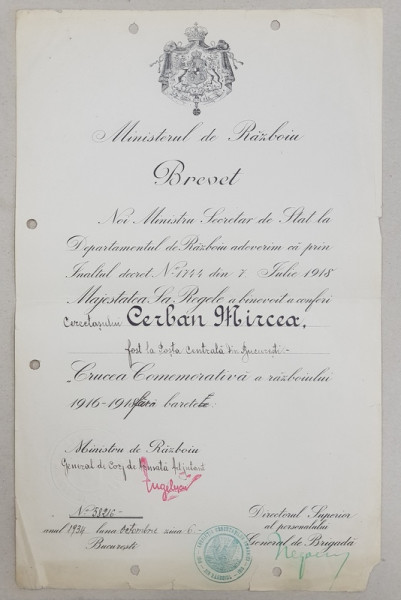 Ministerul de Războiu
Brevet
Noi Ministru Secretar de Stat la
Departamentul de Războiu adeverim că prin
Inaltul decret No 1744 din 7 Iulie 1918
Majestatea Sa Regele a binevoit a conferi
Cercetaşului Cerban Mircea,
fost la Poşta Centrală din Bucureşti-
Crucea Comemorativă a războiului
1916-1918 fără barete
Ministru de Războiu
General de Corp de Armată Adjutant
No 38216-
anul 1934 luna Octombrie ziua 6-
Bucureşti
Directorul Superior
al personalului
General de Brigadă